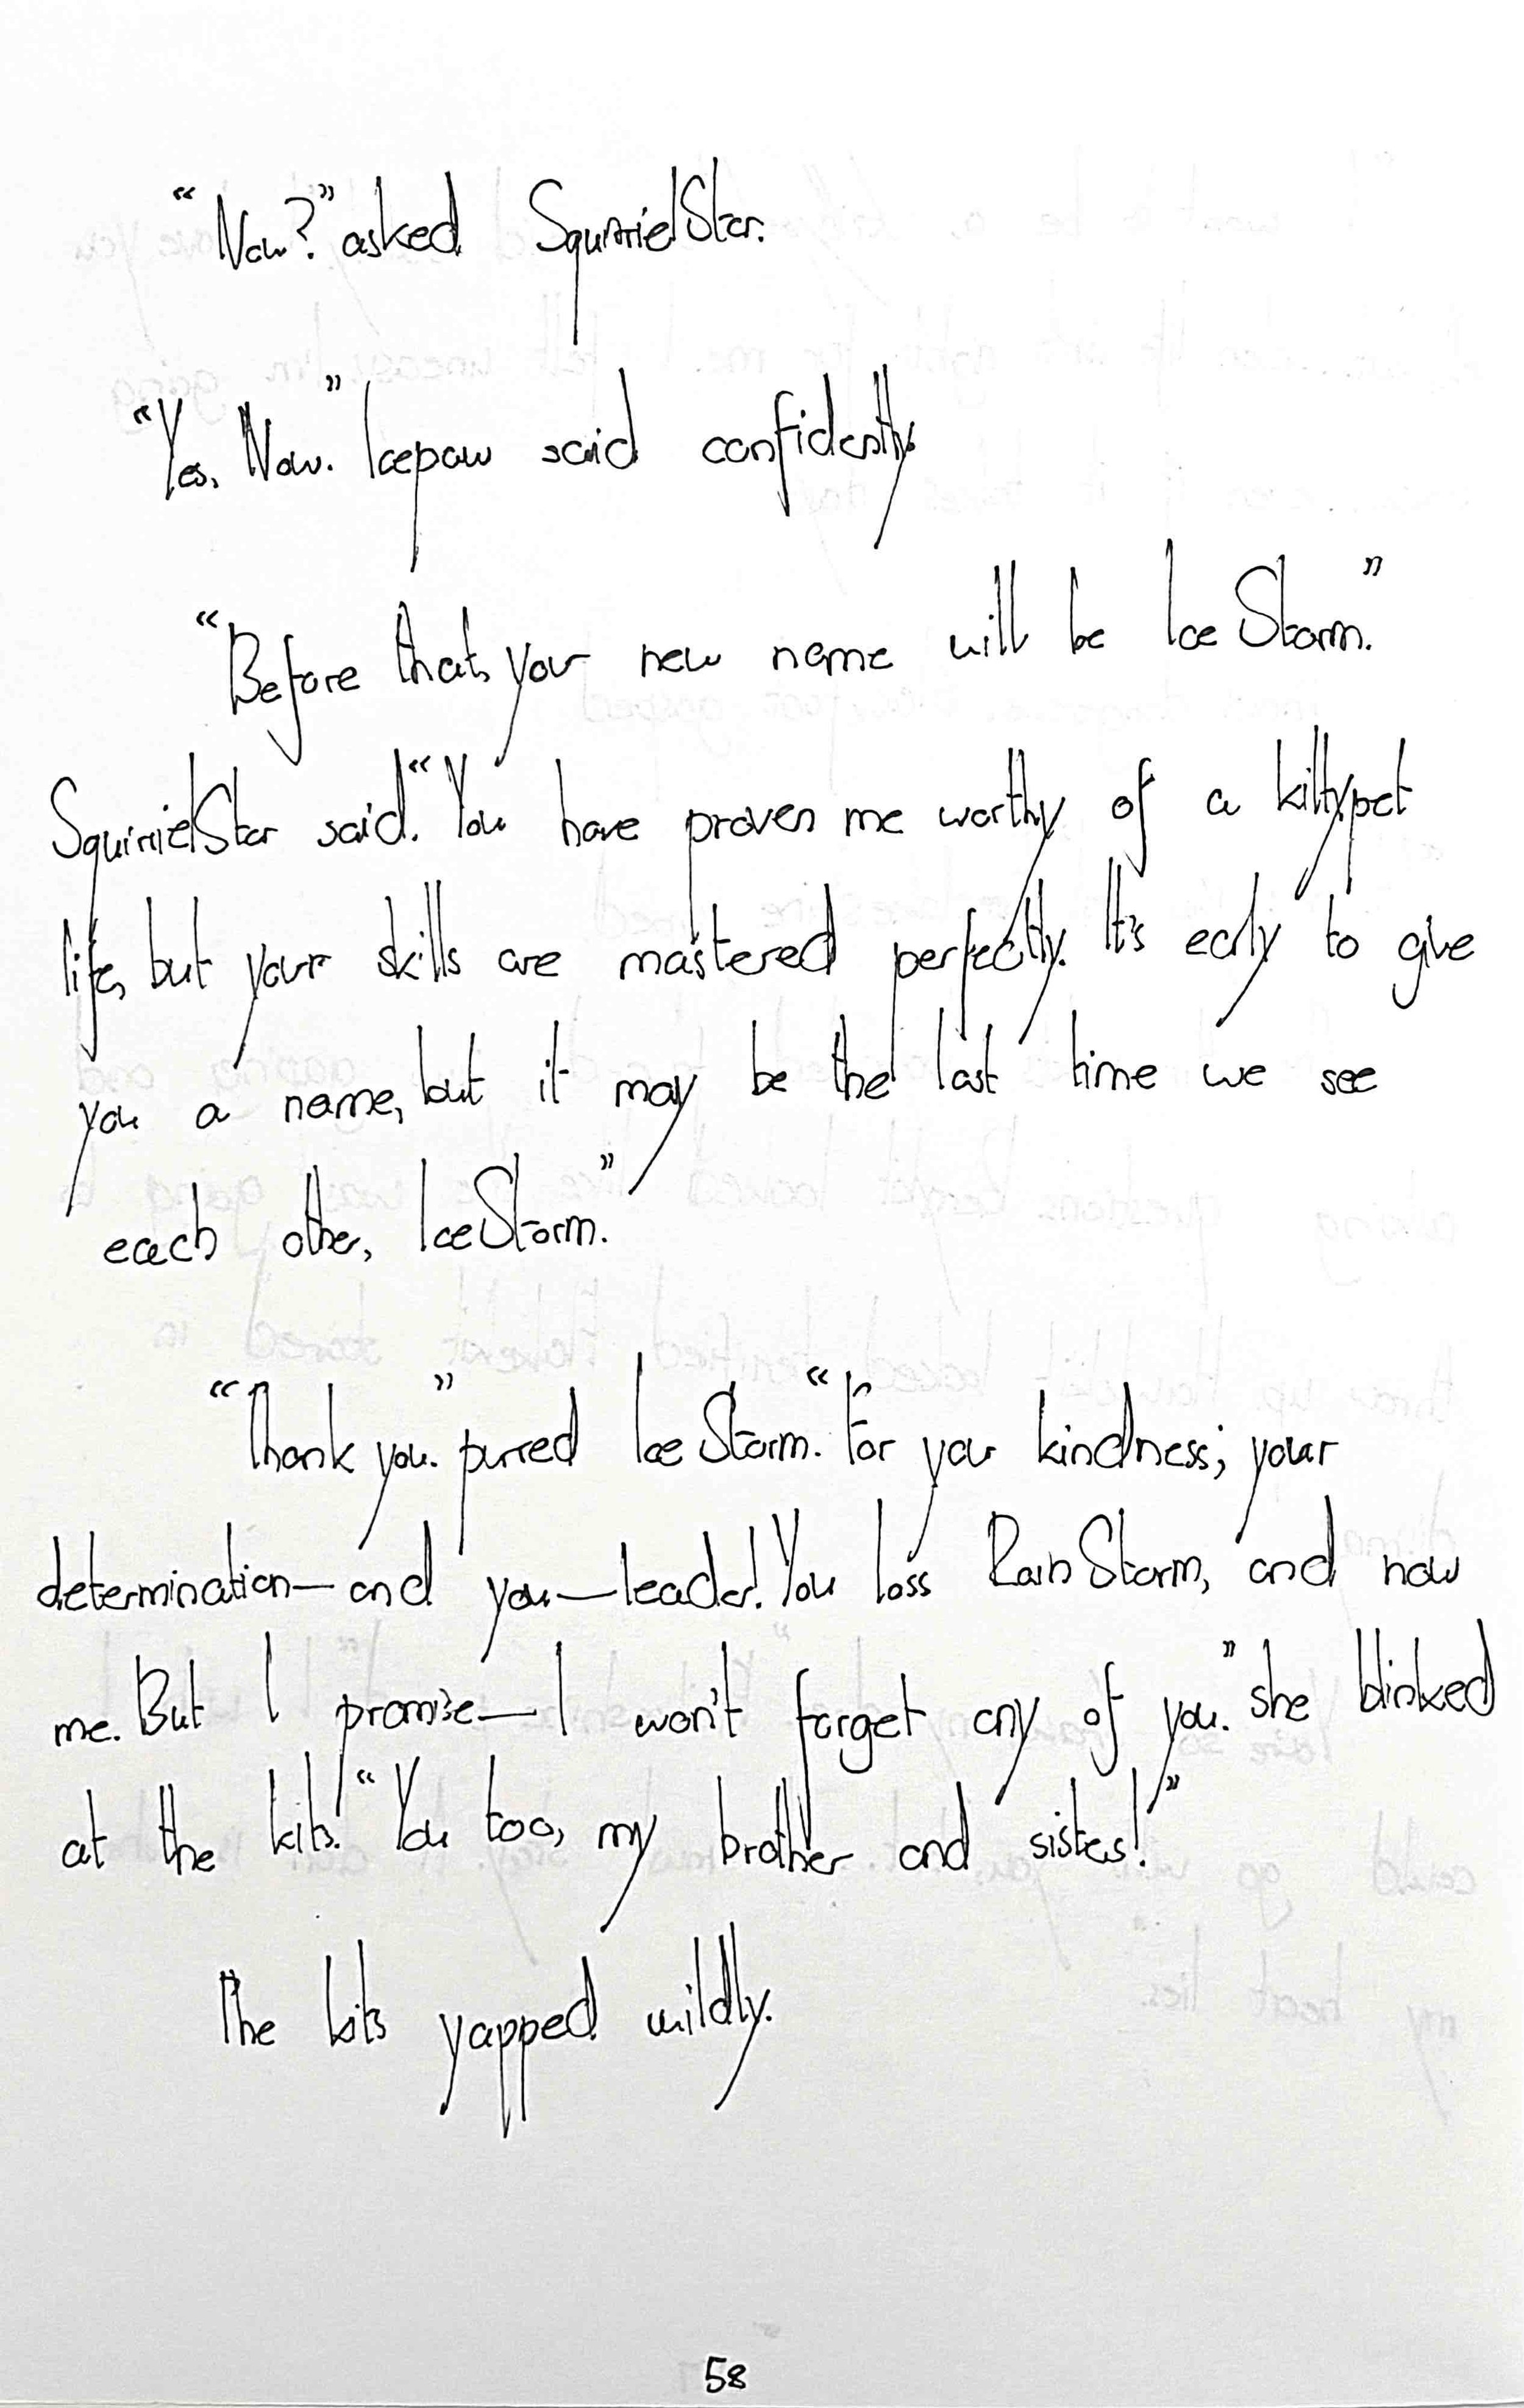 “Now?” asked SquirrielStar.
“Yes. Now.” Icepaw said confidently.
“Before that, your new name will be IceStorm.”
SquirrielStar said. “You have proven me worthy of a kittypet
life, but your skills are mastered perfectly. It's early to give
you a name, but it may be the last time we see
each other, IceStorm.”
“Thank you.” purred IceStorm. “For your kindness; your
determination—and you—leader! You loss RainStorm, and now
me. But I promise—I won't forget any of you.” she blinked
at the kits. “You too, my brother and sisters!”
The kits yapped wildly.
58